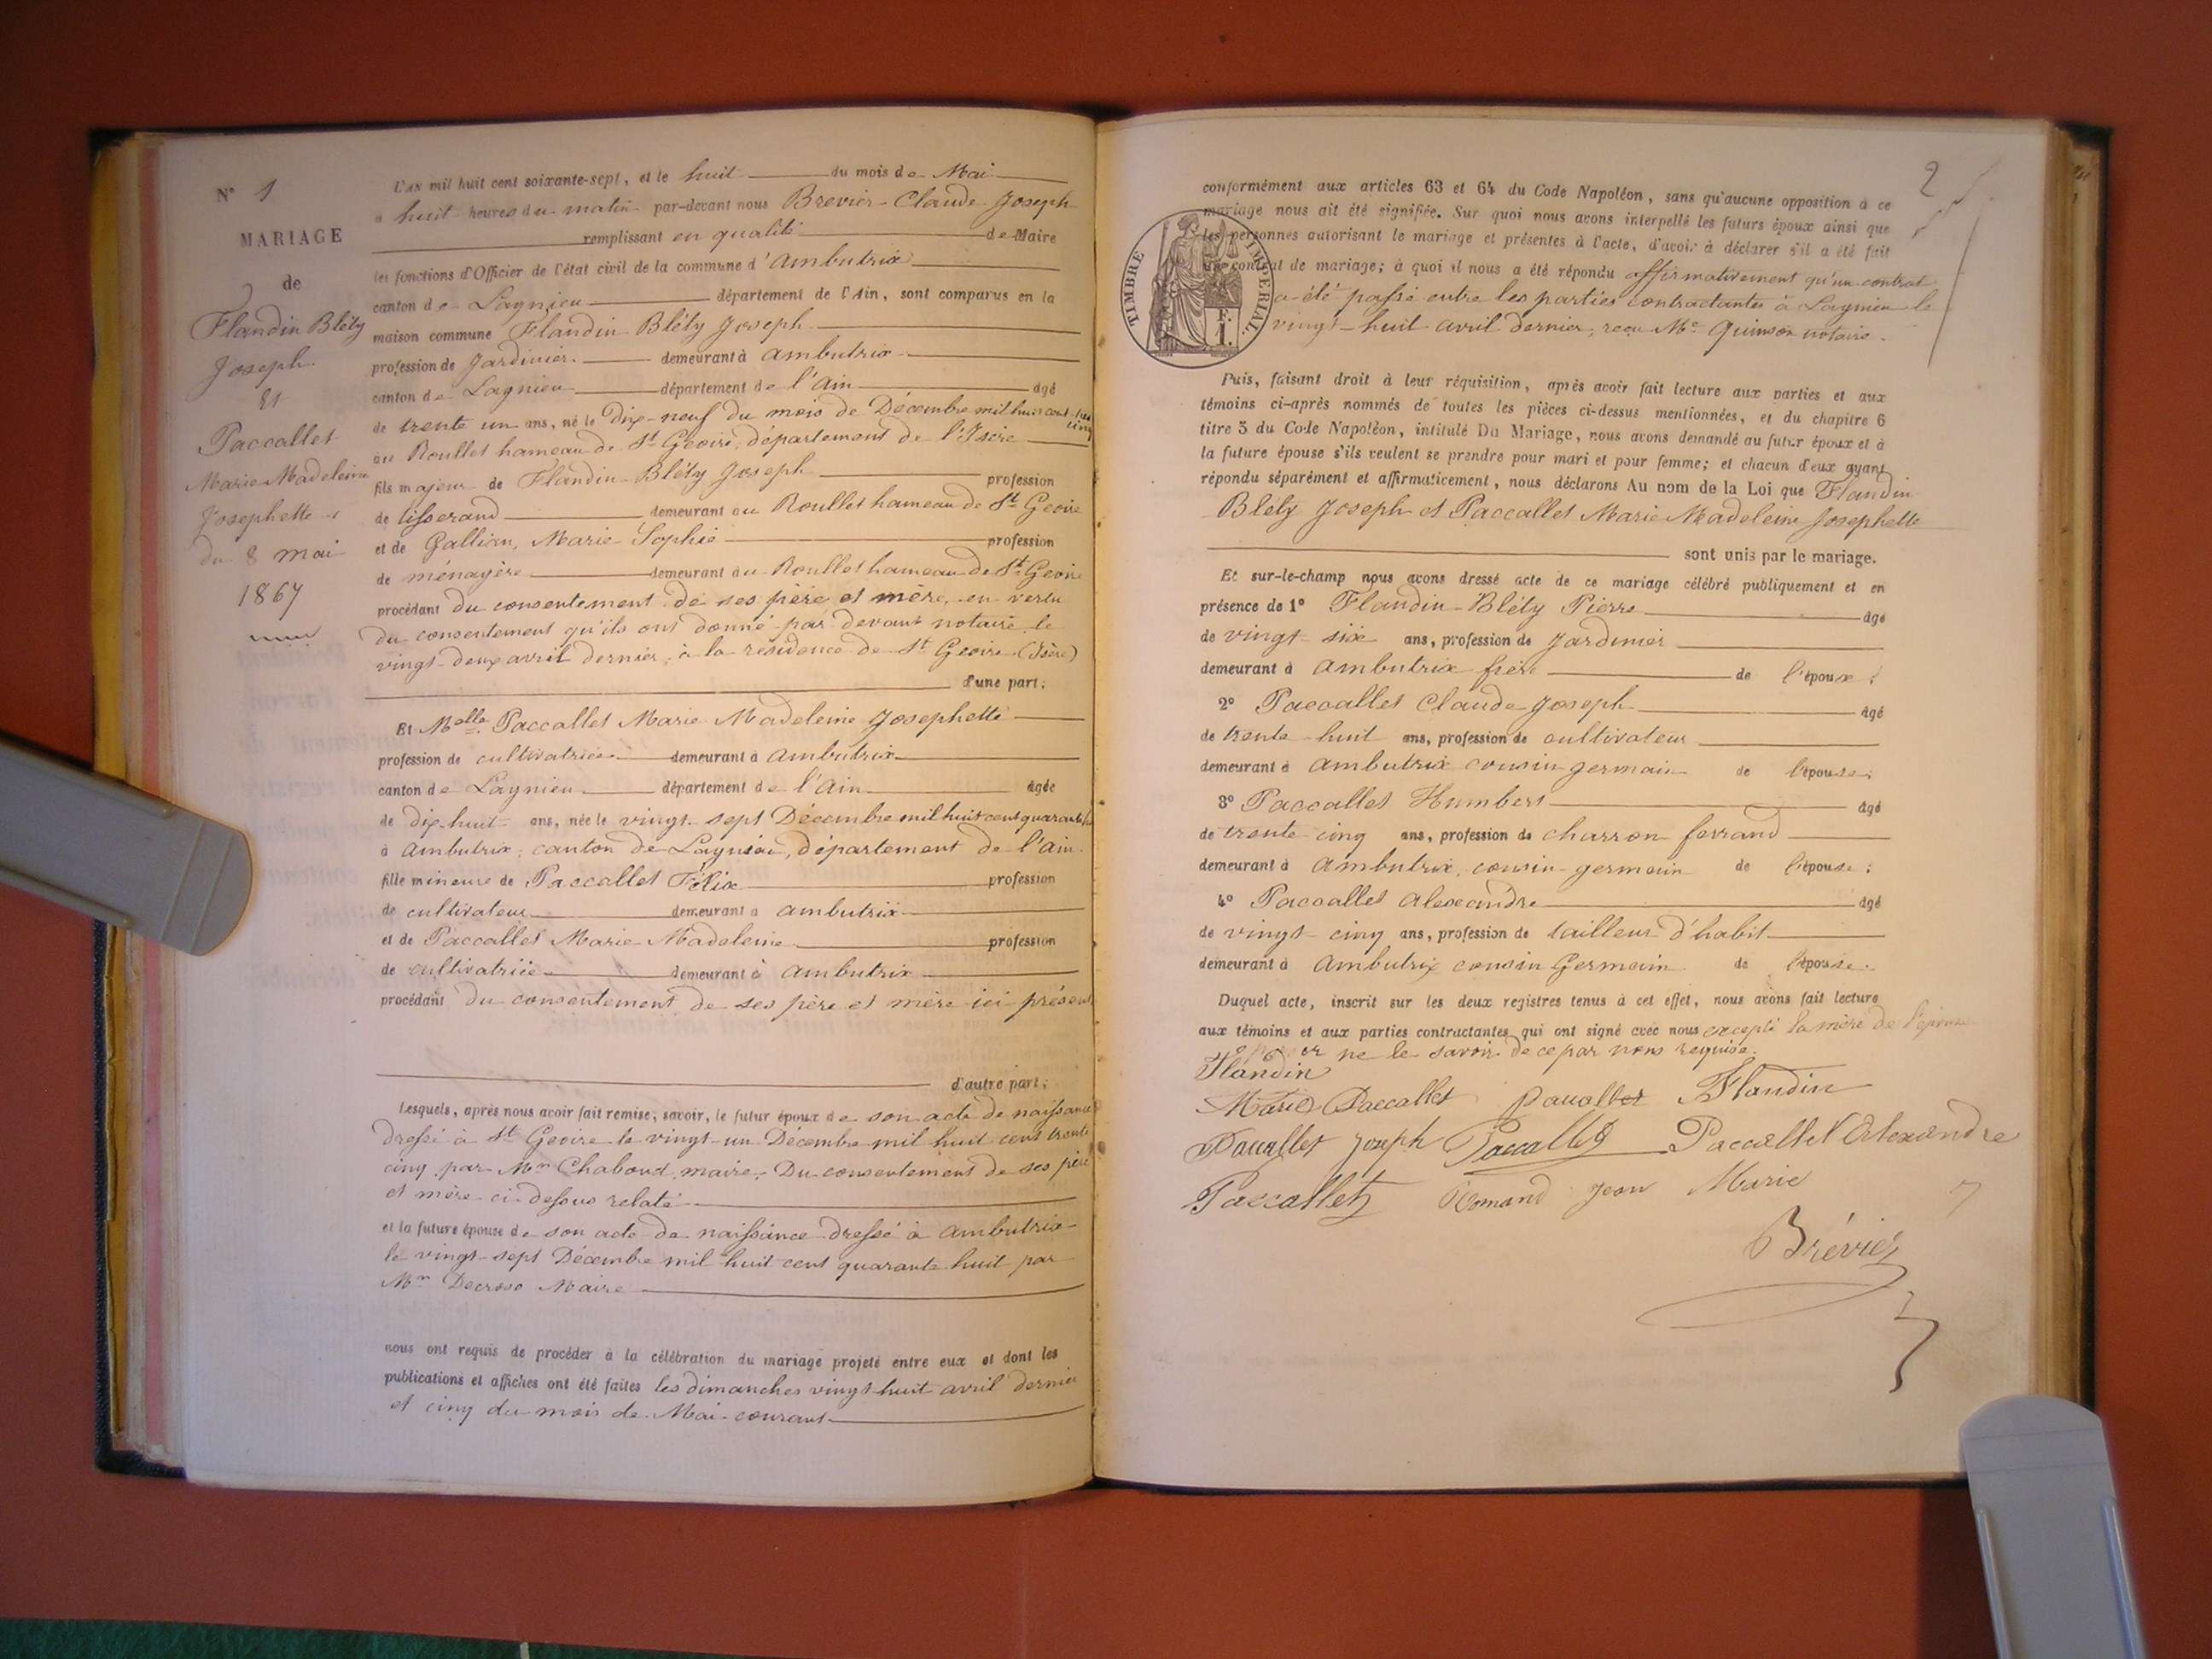 N° 1
MARIAGE
de
Flandin Bléty
Joseph
Et
Paccallet
Marie Madeleine
Josephette
du 8 mai
1867
L'an mil huit cent soixante-sept, et le huit du mois de Mai
à huit heures du matin par-devant nous Brevier Claude Joseph
remplissant en qualité de Maire
les fonctions d'Officier de l'état civil de la commune d'ambutrix
canton de Lagnieu département de l'Ain, sont comparus en la
maison commune Flandin Bléty Joseph
profession de Jardinier demeurant à ambutrix
canton de Lagnieu département de l'ain âgé
de trente un ans, né le dix-neuf du mois de Décembre mil huit cent trente cinq
au Roullet hameau de St Geoire, département de l'Isère
fils majeur de Flandin-Bléty Joseph profession
de tisserand demeurant au Roullet hameau de St Geoire
et de Gallian, Marie Sophie profession
de ménagère demeurant au Roullet hameau de St Geoire
procédant du consentement de ses père et mère, en vertu
du consentement qu'ils ont donné par devant notaire le
vingt-deux avril dernier, à la résidence de St Geoire (Isère)
d'une part;
Et Melle Paccallet Marie Madeleine Josephette
profession de cultivatrice demeurant à ambutrix
canton de Lagnieu département de l'ain âgée
de dix-huit ans, née le vingt-sept Décembre mil huit cent quarante
à ambutrix, canton de Lagnieu, département de l'ain.
fille mineure de Paccallet Félix profession
de cultivateur demeurant à ambutrix
et de Paccallet Marie-Madeleine profession
de cultivatrice demeurant à ambutrix
procédant du consentement de ses père et mère ici présent
d'autre part;
Lesquels, après nous avoir fait remise, savoir, le futur époux de son acte de naissance
dressé à St Geoire le vingt-un Décembre mil huit cent trente
cinq par Mr Chaboud, maire; Du consentement de ses père
et mère ci-dessus relaté
et la future épouse de son acte de naissance dressé à ambutrix
le vingt-sept Décembre mil huit cent quarante huit par
Mr Decroso Maire
nous ont requis de procéder à la célébration du mariage projeté entre eux et dont les
publications et affiches ont été faites les dimanches vingt-huit avril dernier
et cinq du mois de Mai courant
2
TIMBRE IMPERIAL.
F. 1.
conformément aux articles 63 et 64 du Code Napoléon, sans qu'aucune opposition à ce
mariage nous ait été signifiée. Sur quoi nous avons interpellé les futurs époux ainsi que
les personnes autorisant le mariage et présentes à l'acte, d'avoir à déclarer s'il a été fait
un contrat de mariage; à quoi il nous a été répondu affirmativement qu'un contrat
a été passé entre les parties contractantes à Lagnieu le
vingt-huit avril dernier, reçu Me Quinson notaire.
Puis, faisant droit à leur réquisition, après avoir fait lecture aux parties et aux
témoins ci-après nommés de toutes les pièces ci-dessus mentionnées, et du chapitre 6
titre 5 du Code Napoléon, intitulé Du Mariage, nous avons demandé au futur époux et à
la future épouse s'ils veulent se prendre pour mari et pour femme; et chacun d'eux ayant
répondu séparément et affirmativement, nous déclarons Au nom de la Loi que Flandin
Bléty Joseph et Paccallet Marie Madeleine Josephette
sont unis par le mariage.
Et sur-le-champ nous avons dressé acte de ce mariage célébré publiquement et en
présence de 1° Flandin-Bléty Pierre âgé
de vingt six ans, profession de Jardinier
demeurant à ambutrix frère de l'époux;
2° Paccallet Claude Joseph âgé
de trente-huit ans, profession de cultivateur
demeurant à ambutrix cousin germain de l'épouse;
3° Paccallet Humbert âgé
de trente cinq ans, profession de charron ferrand
demeurant à ambutrix, cousin-germain de l'épouse;
4° Paccallet alexandre âgé
de vingt-cinq ans, profession de tailleur d'habit
demeurant à ambutrix cousin Germain de l'épouse.
Duquel acte, inscrit sur les deux registres tenus à cet effet, nous avons fait lecture
aux témoins et aux parties contractantes qui ont signé avec nous excepté la mère de l'épouse
ne le savoir de ce par nous requise.
Flandin
Marie Paccallet Paccallet Flandin
Paccallet Joseph Paccallet Paccallet Alexandre
Paccallet Jean Marie
Brévier